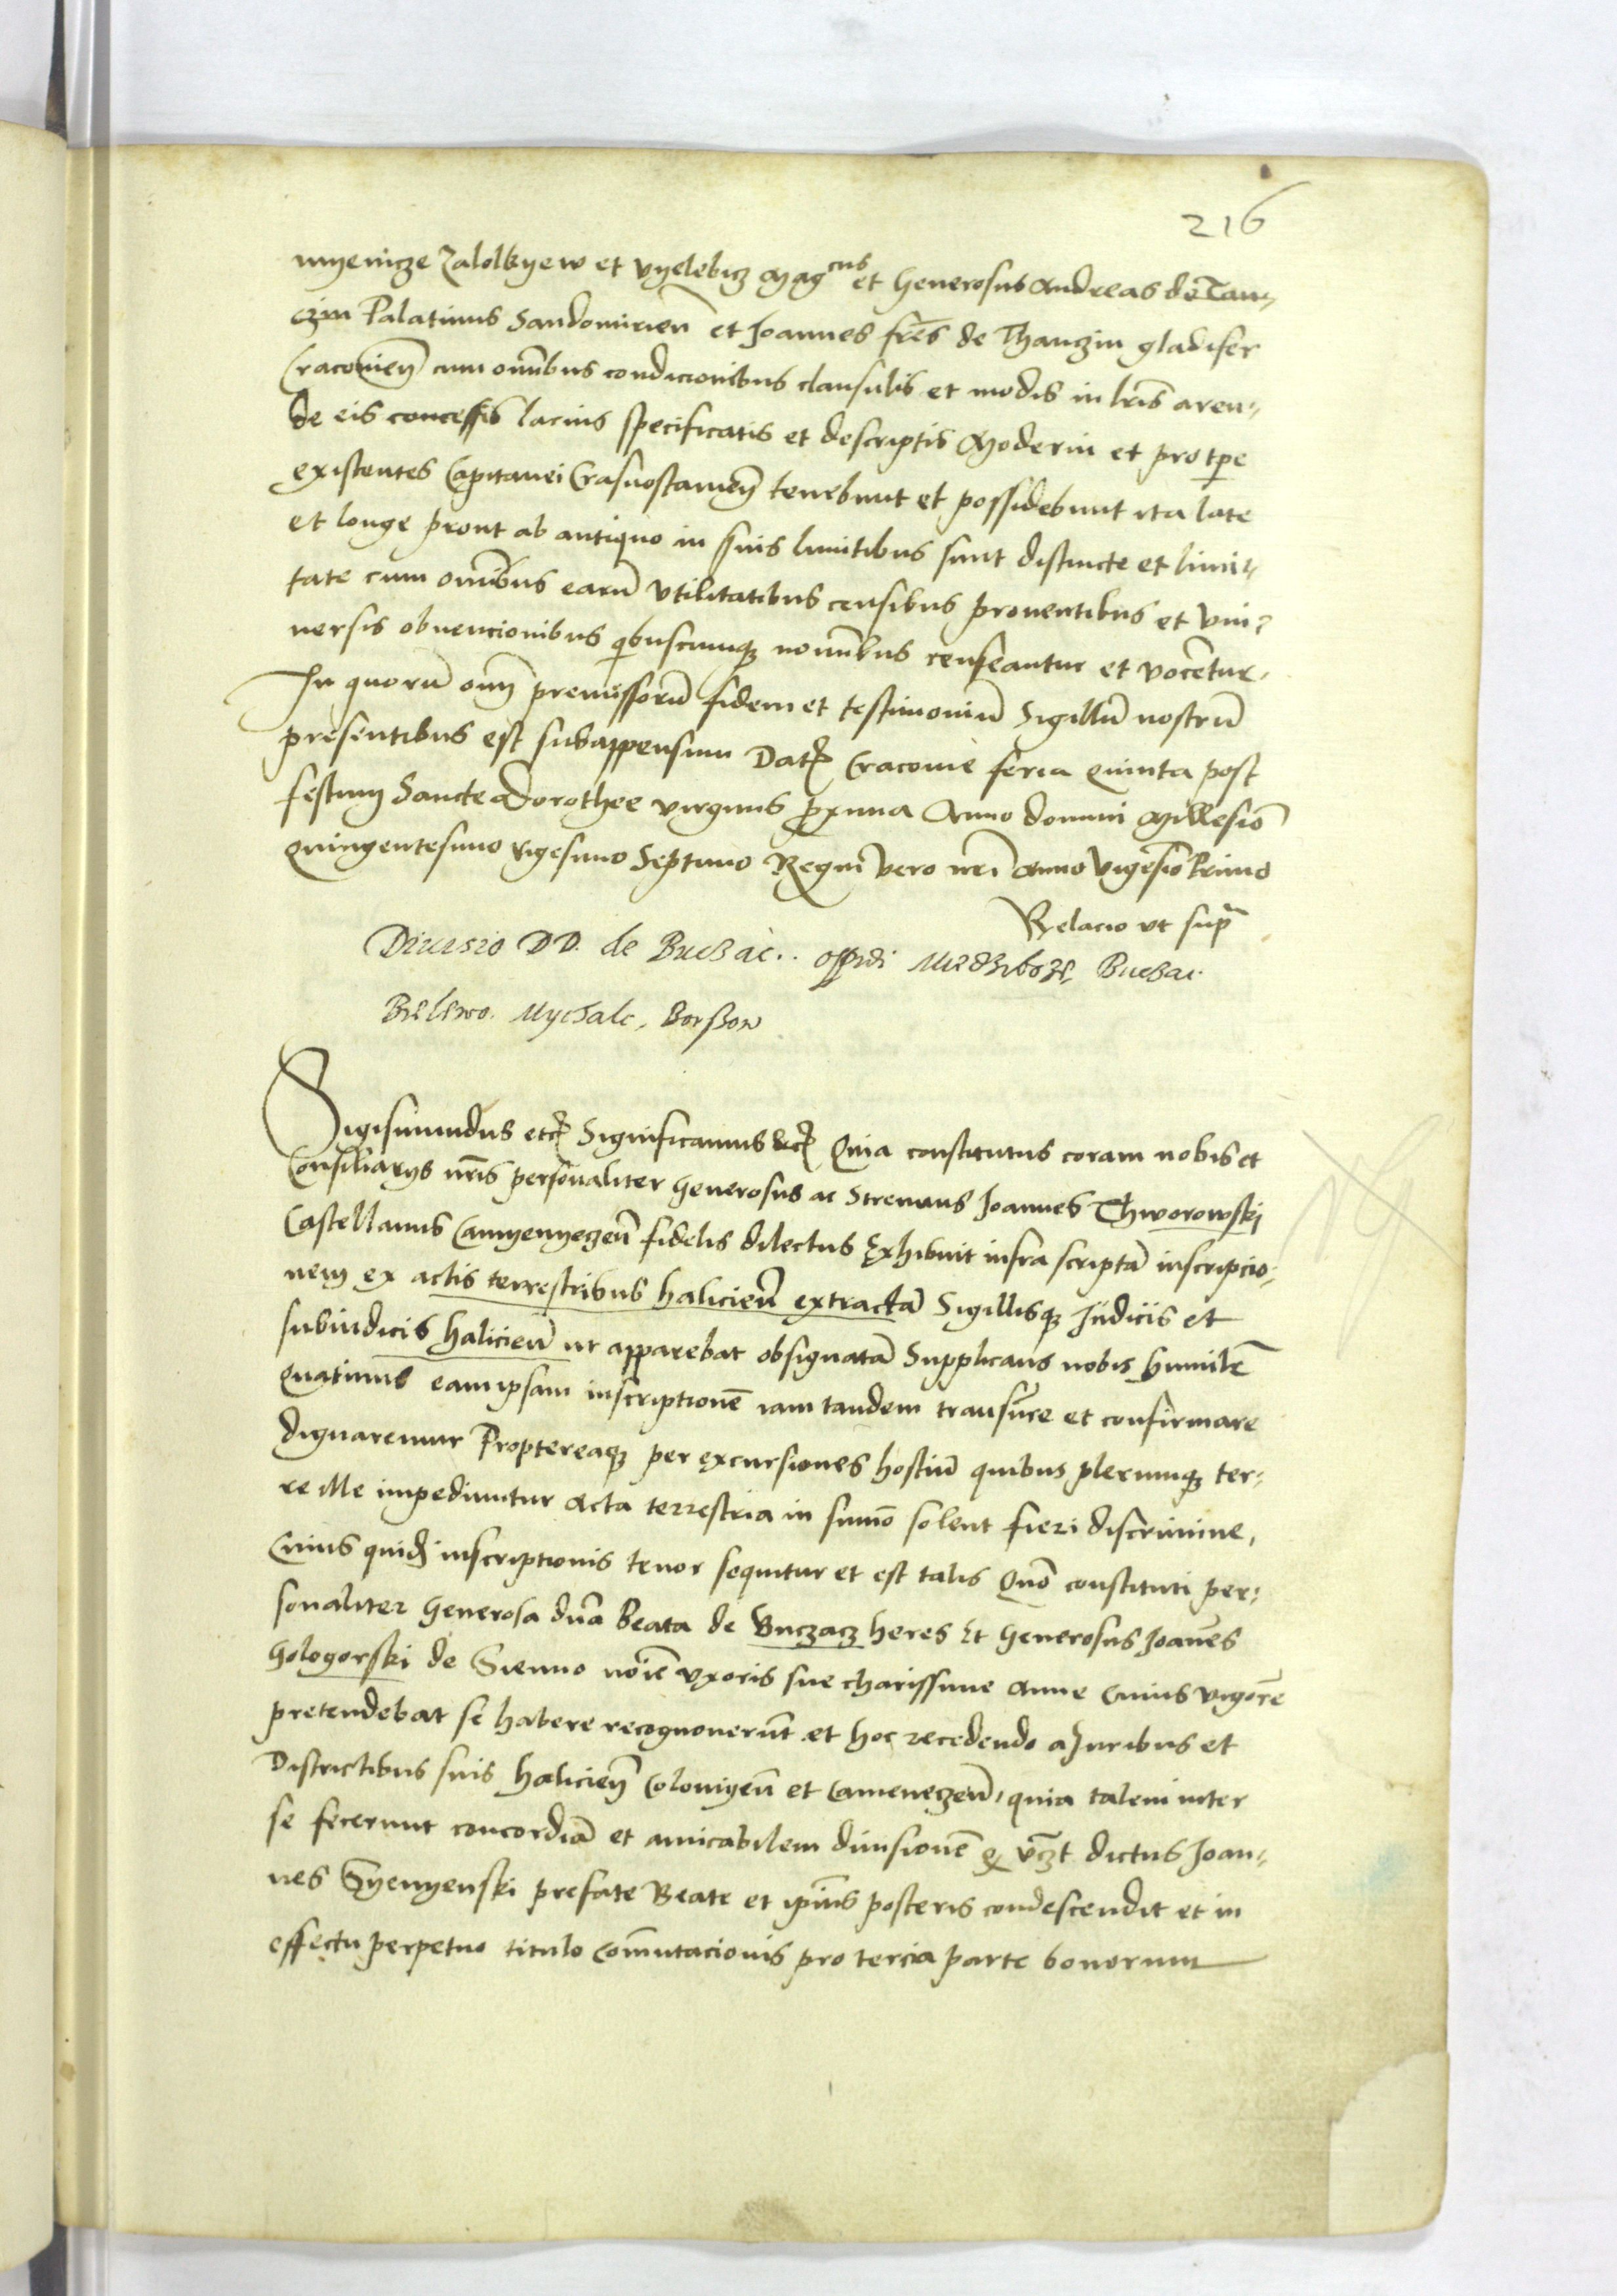 216
myenicze Zalolkyew et Vyelebicz Mag^cus et Generosus Andreas de Tan-
czin Palatinus Sandomirien̄ et Joannes fr̄es de Thanczin gladifer
Cracovien̄ cum om̄ibus condicionibus clausulis et modis in lr̄is aren-
de eis concessis lacius specificatis et descriptis Moderni et pro tp̄e
existentes Capitanei Crasnostamen̄ tenebunt et possidebunt ita late
et longe prout ab antiquo in suis limitibus sunt distincte et limi-
tate cum om̄ibus earū vtilitatibus censibus proventibus et vni-
uersis obuencionibus qbuscumqꝫ nomībus censeantur et vocētur.
In quorū om̄ premissorū fidem et testimoniū Sigillū nostrū
presentibus est subappensum Datꝭ Cracovie feria Quinta post
festum Sancte Dorothee virginis p̄xima Anno domini Millesiō
Quingentesimo vigesimo Septimo Regni vero nr̄i anno Vigesiō Primo
Relacio vt sup̄
Diuisio DD. de Buczac.. opp̄idi Miedzibozs, Buczac.
Bielewo. Mychalc, Borszow
Sigismundus etcꝭ Significamus etcꝭ Quia constitutus coram nobis et
Consiliarys nr̄is personaliter Generosus ac Strenuus Joannes Thworowskj
Castellanus Camyenyeczen̄ fidelis dilectus Exhibuit infra scriptā inscripcio-
nem ex actis terrestribus halicien̄ extractā Sigillisqꝫ Judicis et
subiudicis halicien̄ ut apparebat obsignatā Supplicans nobis humilr̄
Quatinus eam ipsam inscriptionē iam tandem transūere et confirmare
dignaremur Proptereaqꝫ per excursiones hostiū quibus plerumqꝫ ter-
re ille impediuntur Acta terrestria in summo solent fieri discrimine,
Cuius quidꝫ inscriptionis tenor sequitur et est talis Quō constituti per-
sonaliter Generosa dn̄a Beata de Buczacz heres Et Generosus Joan̄es
Gologorski de Sienno noīe vxoris sue charissime Anne Cuius vigorē
pretendebat se habere recognouerūt et hoc recedendo a Juribus et
Districtibus suis halicien̄ Colomyen̄ et Cameneczen̄, quia talem inter
se fecerunt concordiā et amicabilem diuisionē Q vczt dictus Joan-
nes Syenyenski prefate Beate et ip̄ius posteris condescendit et in
effectu perpetuo titulo Com̄utacionis pro tercia parte bonorum